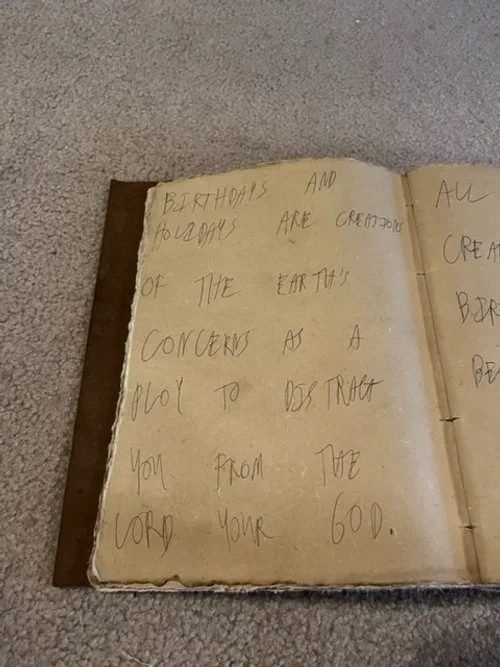 BIRTHDAYS AND
HOLIDAYS ARE CREATIONS
OF THE EARTH'S
CONCERNS AS A
PLOY TO DISTRACT
YOU FROM THE
LORD YOUR GOD.
ALL
CREAT
BIR
BE